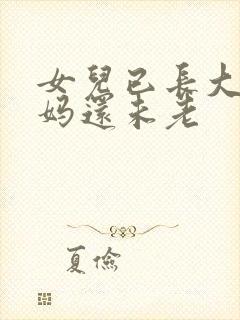 女兒已長大
妈還未老
夏儉